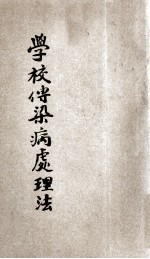 學校传染病處理法